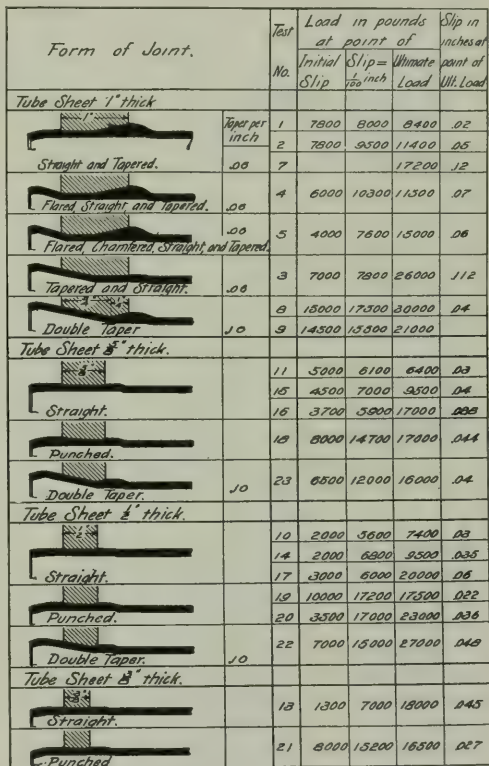 Form of Joint.
Test No.
Load in pounds at point of
Initial Slip
Slip = 1/100 inch
Ultimate Load
Slip in inches at point of Ult. Load
Tube Sheet 1" thick
Taper per inch
1"
1 7800 8000 8400 .02
2 7800 9500 11400 .05
Straight and Tapered. .06 7 17200 .12
Flared, Straight and Tapered. .06 4 6000 10300 11500 .07
Flared, Chamfered, Straight, and Tapered. .06 5 4000 7600 15000 .06
Tapered and Straight. .06 3 7000 7800 26000 .112
8 15000 17500 30000 .04
Double Taper .10 9 14500 15500 21000
Tube Sheet 5/8" thick.
11 5000 6100 6400 .03
15 4500 7000 9500 .04
Straight. 16 3700 5900 17000
Punched. 18 8000 14700 17000 .044
Double Taper. .10 23 6500 12000 16000 .04
Tube Sheet 1/2" thick.
1/2"
10 2000 5600 7400 .03
14 2000 6800 9500 .035
Straight. 17 3000 6000 20000 .06
19 10000 17200 17500 .022
Punched. 20 3500 17000 23000 .036
Double Taper. .10 22 7000 15000 27000 .048
Tube Sheet 3/8" thick.
3/8"
Straight. 13 1300 7000 18000 .045
Punched 21 8000 15200 16500 .027